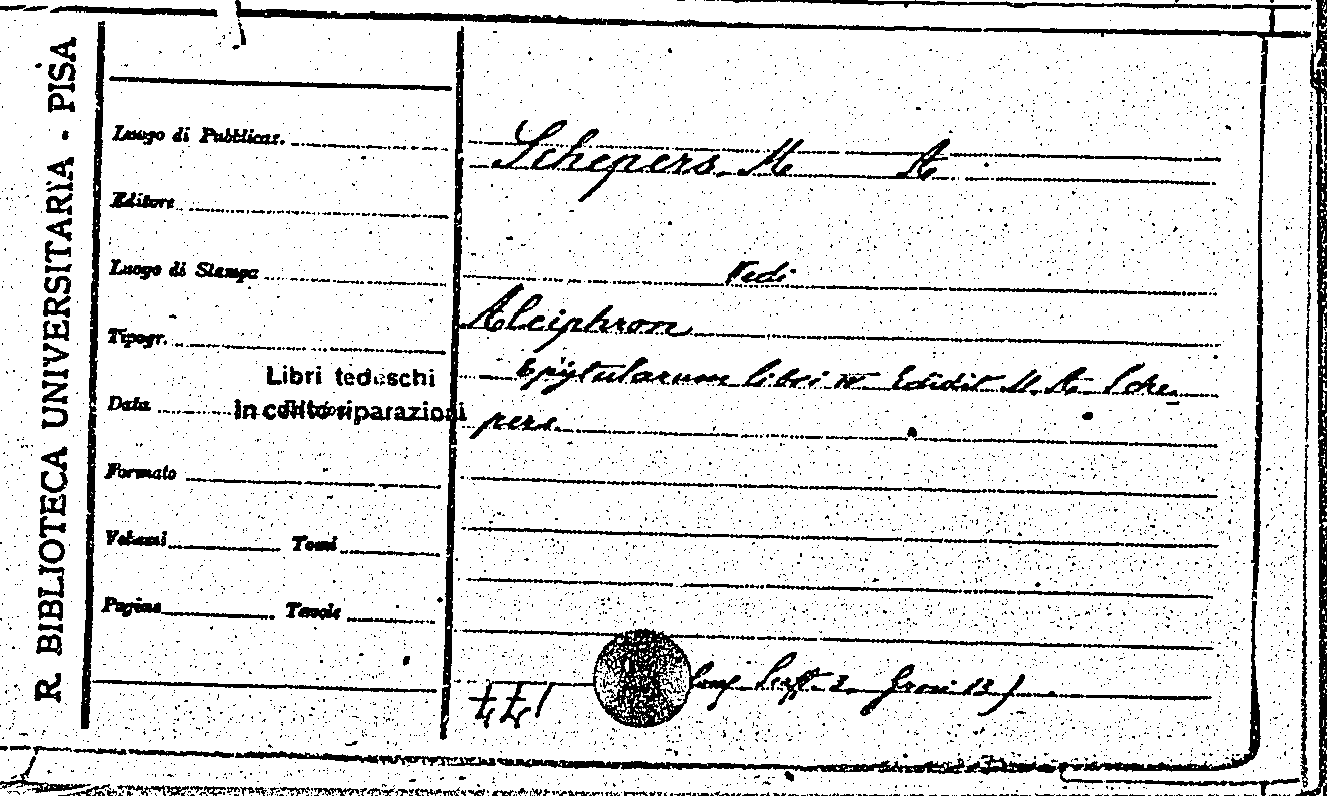 R. BIBLIOTECA UNIVERSITARIA - PISA
Luogo di Pubblicaz.
Editore
Luogo di Stampa
Tipogr.
Libri tedeschi
Data
in conto riparazioni
Formato
Volumi Tomi
Pagine Tavole
Schepers M A
Vedi
Alciphron
Epistularum libri IV Edidit M. A. Sche-
pers.